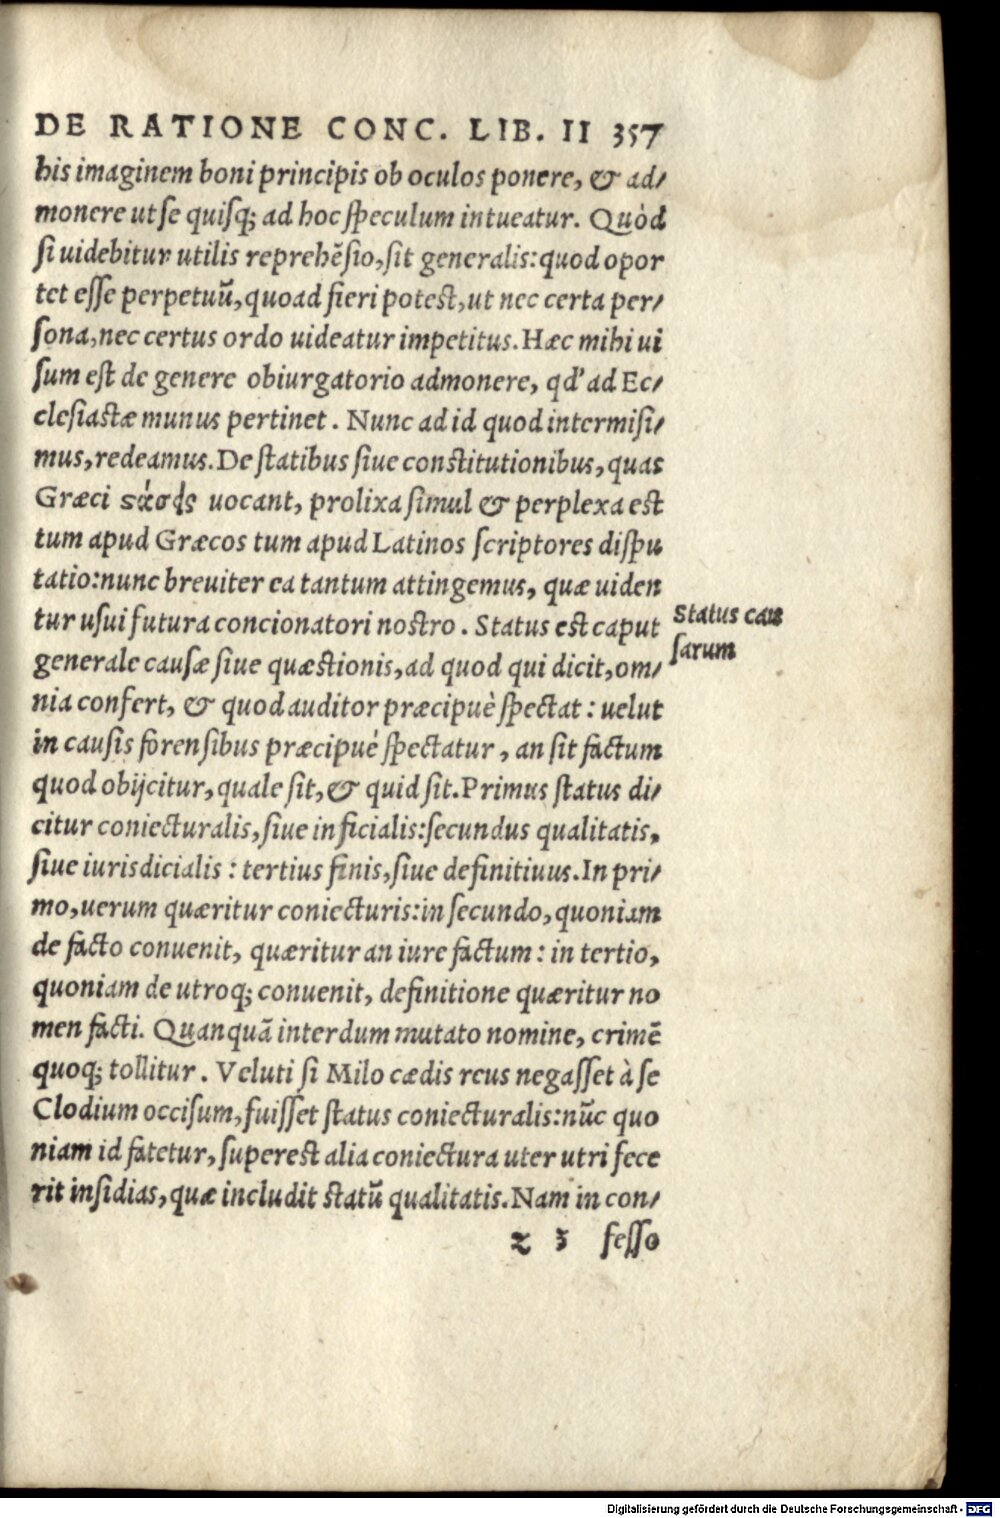 DE RATIONE CONC. LIB. II 357
his imaginem boni principis ob oculos ponere, & ad/
monere ut se quisq; ad hoc speculum intueatur. Quòd
si uidebitur utilis reprehẽsio, sit generalis: quod opor
tet esse perpetuũ, quoad fieri potest, ut nec certa per/
sona, nec certus ordo uideatur impetitus. Hæc mihi ui
sum est de genere obiurgatorio admonere, qd' ad Ec/
clesiastæ munus pertinet. Nunc ad id quod intermisi/
mus, redeamus. De statibus siue constitutionibus, quas
Græci ϛάσεις uocant, prolixa simul & perplexa est
tum apud Græcos tum apud Latinos scriptores dispu
tatio: nunc breuiter ea tantum attingemus, quæ uiden
tur usui futura concionatori nostro. Status est caput
Status cau
sarum
generale causæ siue quæstionis, ad quod qui dicit, om/
nia confert, & quod auditor præcipuè spectat: uelut
in causis forensibus præcipuè spectatur, an sit factum
quod obijcitur, quale sit, & quid sit. Primus status di/
citur coniecturalis, siue inficialis: secundus qualitatis,
siue iurisdicialis: tertius finis, siue definitiuus. In pri/
mo, uerum quæritur coniecturis: in secundo, quoniam
de facto conuenit, quæritur an iure factum: in tertio,
quoniam de utroq; conuenit, definitione quæritur no
men facti. Quanquã interdum mutato nomine, crimẽ
quoq; tollitur. Veluti si Milo cædis reus negasset à se
Clodium occisum, fuisset status coniecturalis: nũc quo
niam id fatetur, superest alia coniectura uter utri fece
rit insidias, quæ includit statũ qualitatis. Nam in con/
z 3 fesso
Digitalisierung gefördert durch die Deutsche Forschungsgemeinschaft - DFG